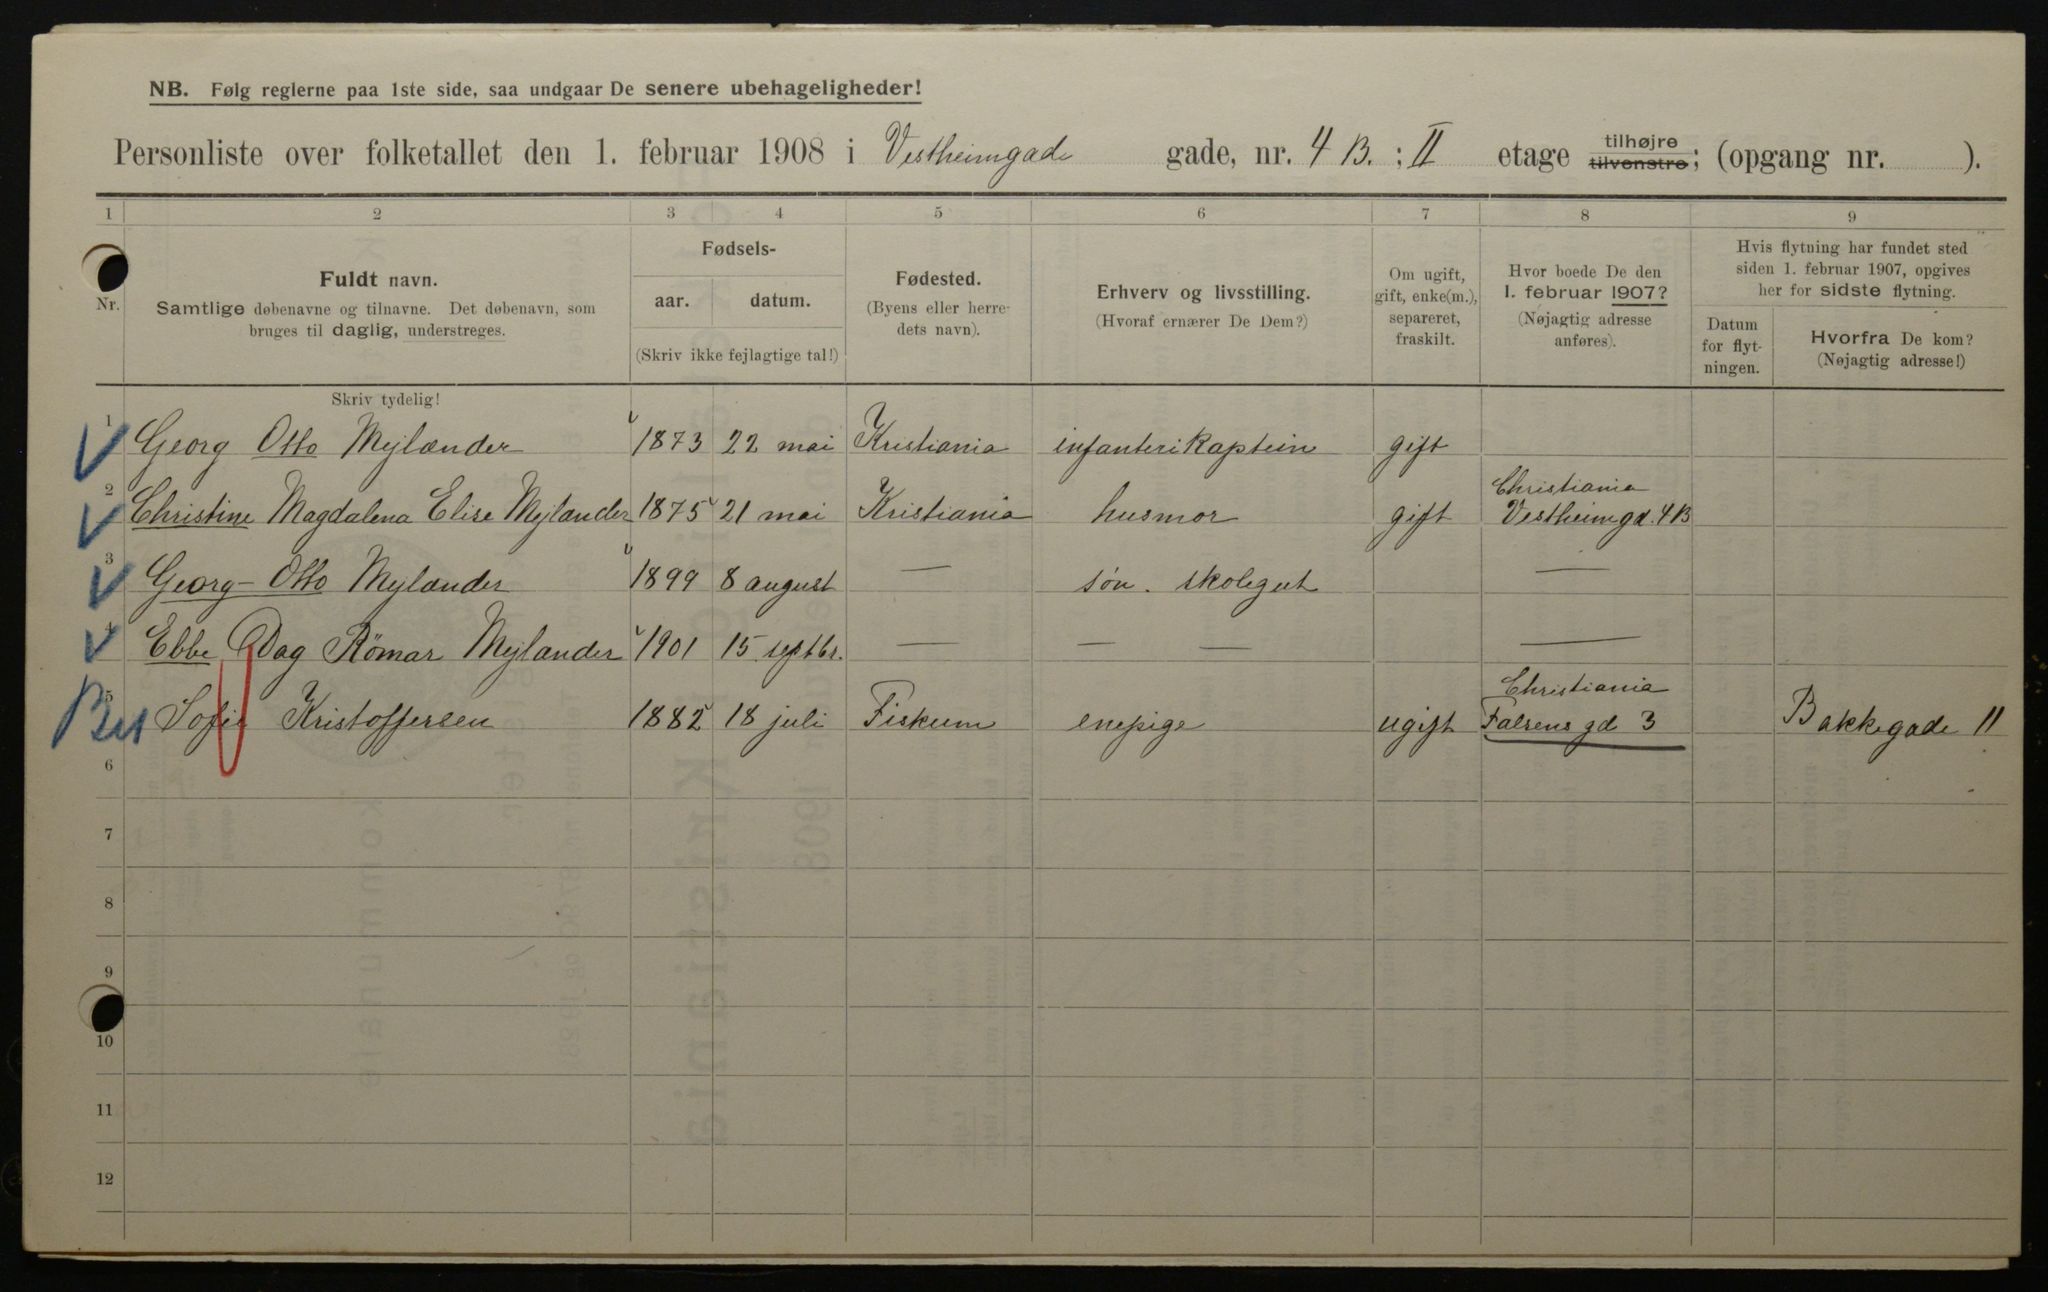 NB. Følg reglerne paa 1ste side, saa undgaar De senere ubehageligheder!
Personliste over folketallet den 1. februar 1908 i Vestheimgade gade, nr. 4 B. ; II etage tilhøjre tilvenstre; (opgang nr. ).
1 2 3 4 5 6 7 8 9
Nr.
Fuldt navn.
Samtlige døbenavne og tilnavne. Det døbenavn, som
bruges til daglig, understreges.
Skriv tydelig!
Fødsels-
aar. datum.
(Skriv ikke fejlagtige tal!)
Fødested.
(Byens eller herre-
dets navn).
Erhverv og livsstilling.
(Hvoraf ernærer De Dem?)
Om ugift,
gift, enke(m.),
separeret,
fraskilt.
Hvor boede De den
1. februar 1907?
(Nøjagtig adresse
anføres).
Hvis flytning har fundet sted
siden 1. februar 1907, opgives
her for sidste flytning.
Datum
for flyt-
ningen.
Hvorfra De kom?
(Nøjagtig adresse!)
1 Georg Otto Mejlænder 1873 22 mai Kristiania infanterikaptein gift
Christiania
2 Christine Magdalena Elise Mejlænder 1875 21 mai Kristiania husmor gift Vestheimgd. 4B
3 Georg-Otto Mejlænder 1899 8 august — søn. skolegut —
4 Ebbe Dag Römar Mejlænder 1901 15 septbr. — — — —
Christiania
5 Sofie Kristoffersen 1882 18 juli Fiskum enepige ugift Falsens gd 3 Bakkegade 11
6
7
8
9
10
11
12